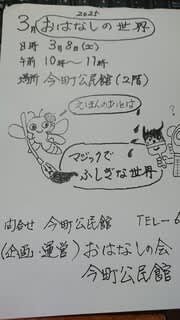 2025
3月 おはなしの世界
日時 3月8日(土)
午前 10時〜11時
場所 今町公民館(2階)
えほんのおはなし
マジックで
ふしぎな世界
?
問合せ 今町公民館 TEL-6
(企画・運営) おはなしの会
今町公民館